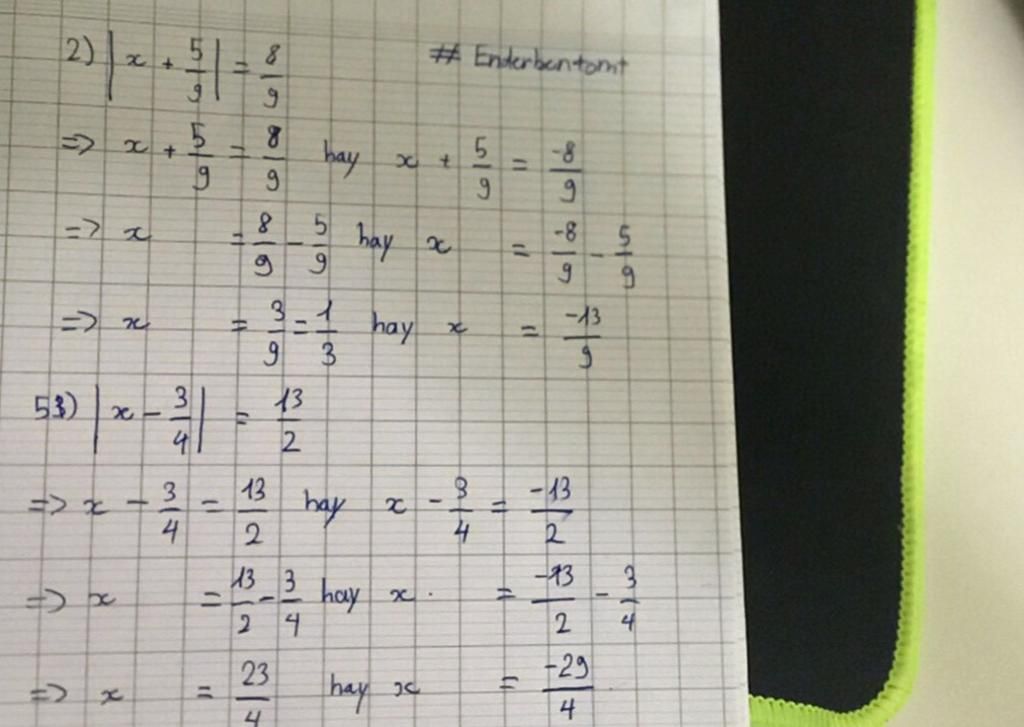 2) |x + 5/9| = 8/9 ## Enderbentomt
=> x + 5/9 = 8/9 hay x + 5/9 = -8/9
=> x = 8/9 - 5/9 hay x = -8/9 - 5/9
=> x = 3/9 = 1/3 hay x = -13/9
53) |x - 3/4| = 13/2
=> x - 3/4 = 13/2 hay x - 3/4 = -13/2
=> x = 13/2 - 3/4 hay x = -13/2 - 3/4
=> x = 23/4 hay x = -29/4